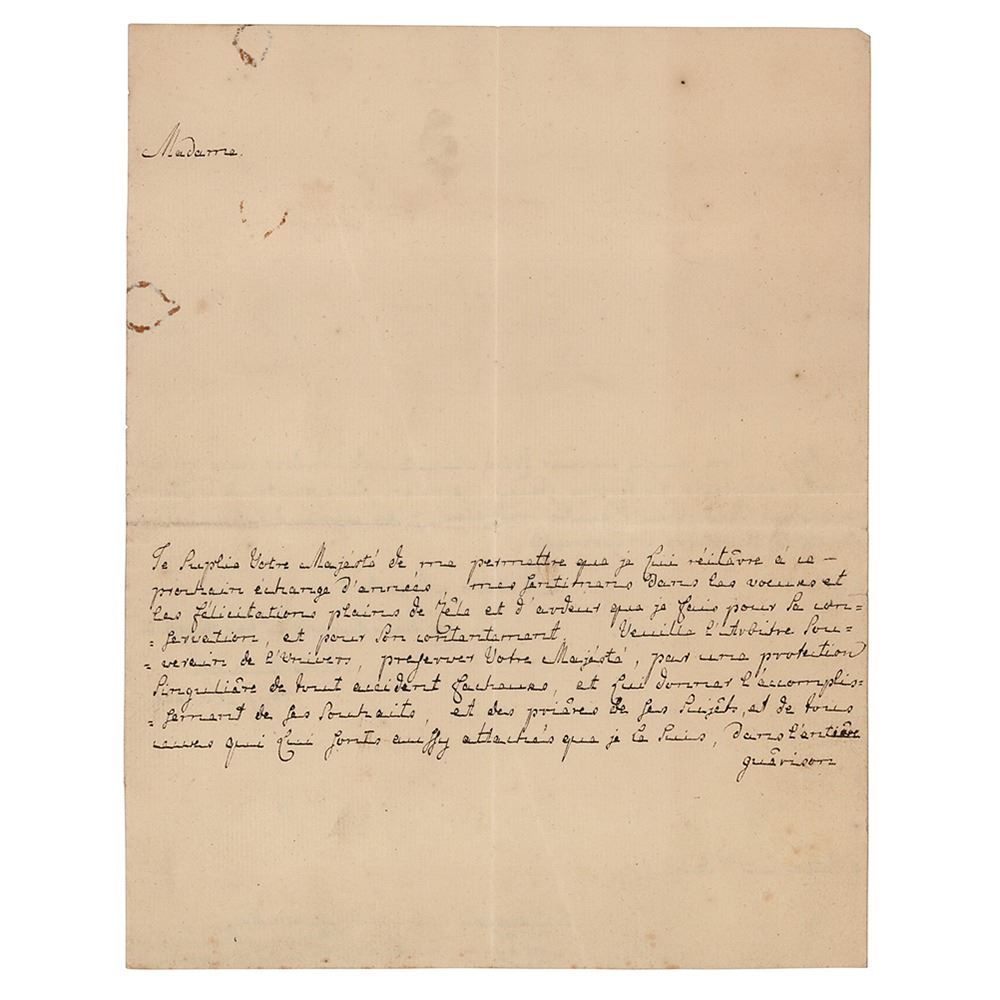 Madame.
Je suplie Votre Majésté de me permettre que je lui réitère à ce-
prochain échange d'années, mes sentimens dans les voeues et
les félicitations pleins de Zêle et d'ardeur que je fais pour sa con=
=servation, et pour son contentement. Veuille l'Arbitre Sou=
=verain de l'Univers, preserver Votre Majésté, par une protection
singuliêre de tout accident facheues, et lui donner l'accomplis=
=sement de ses souhaits, et des priêres de ses Sujêts, et de tous
ceues qui lui sonts aussy attachés que je le suis, dans l'entiêre
guêrison